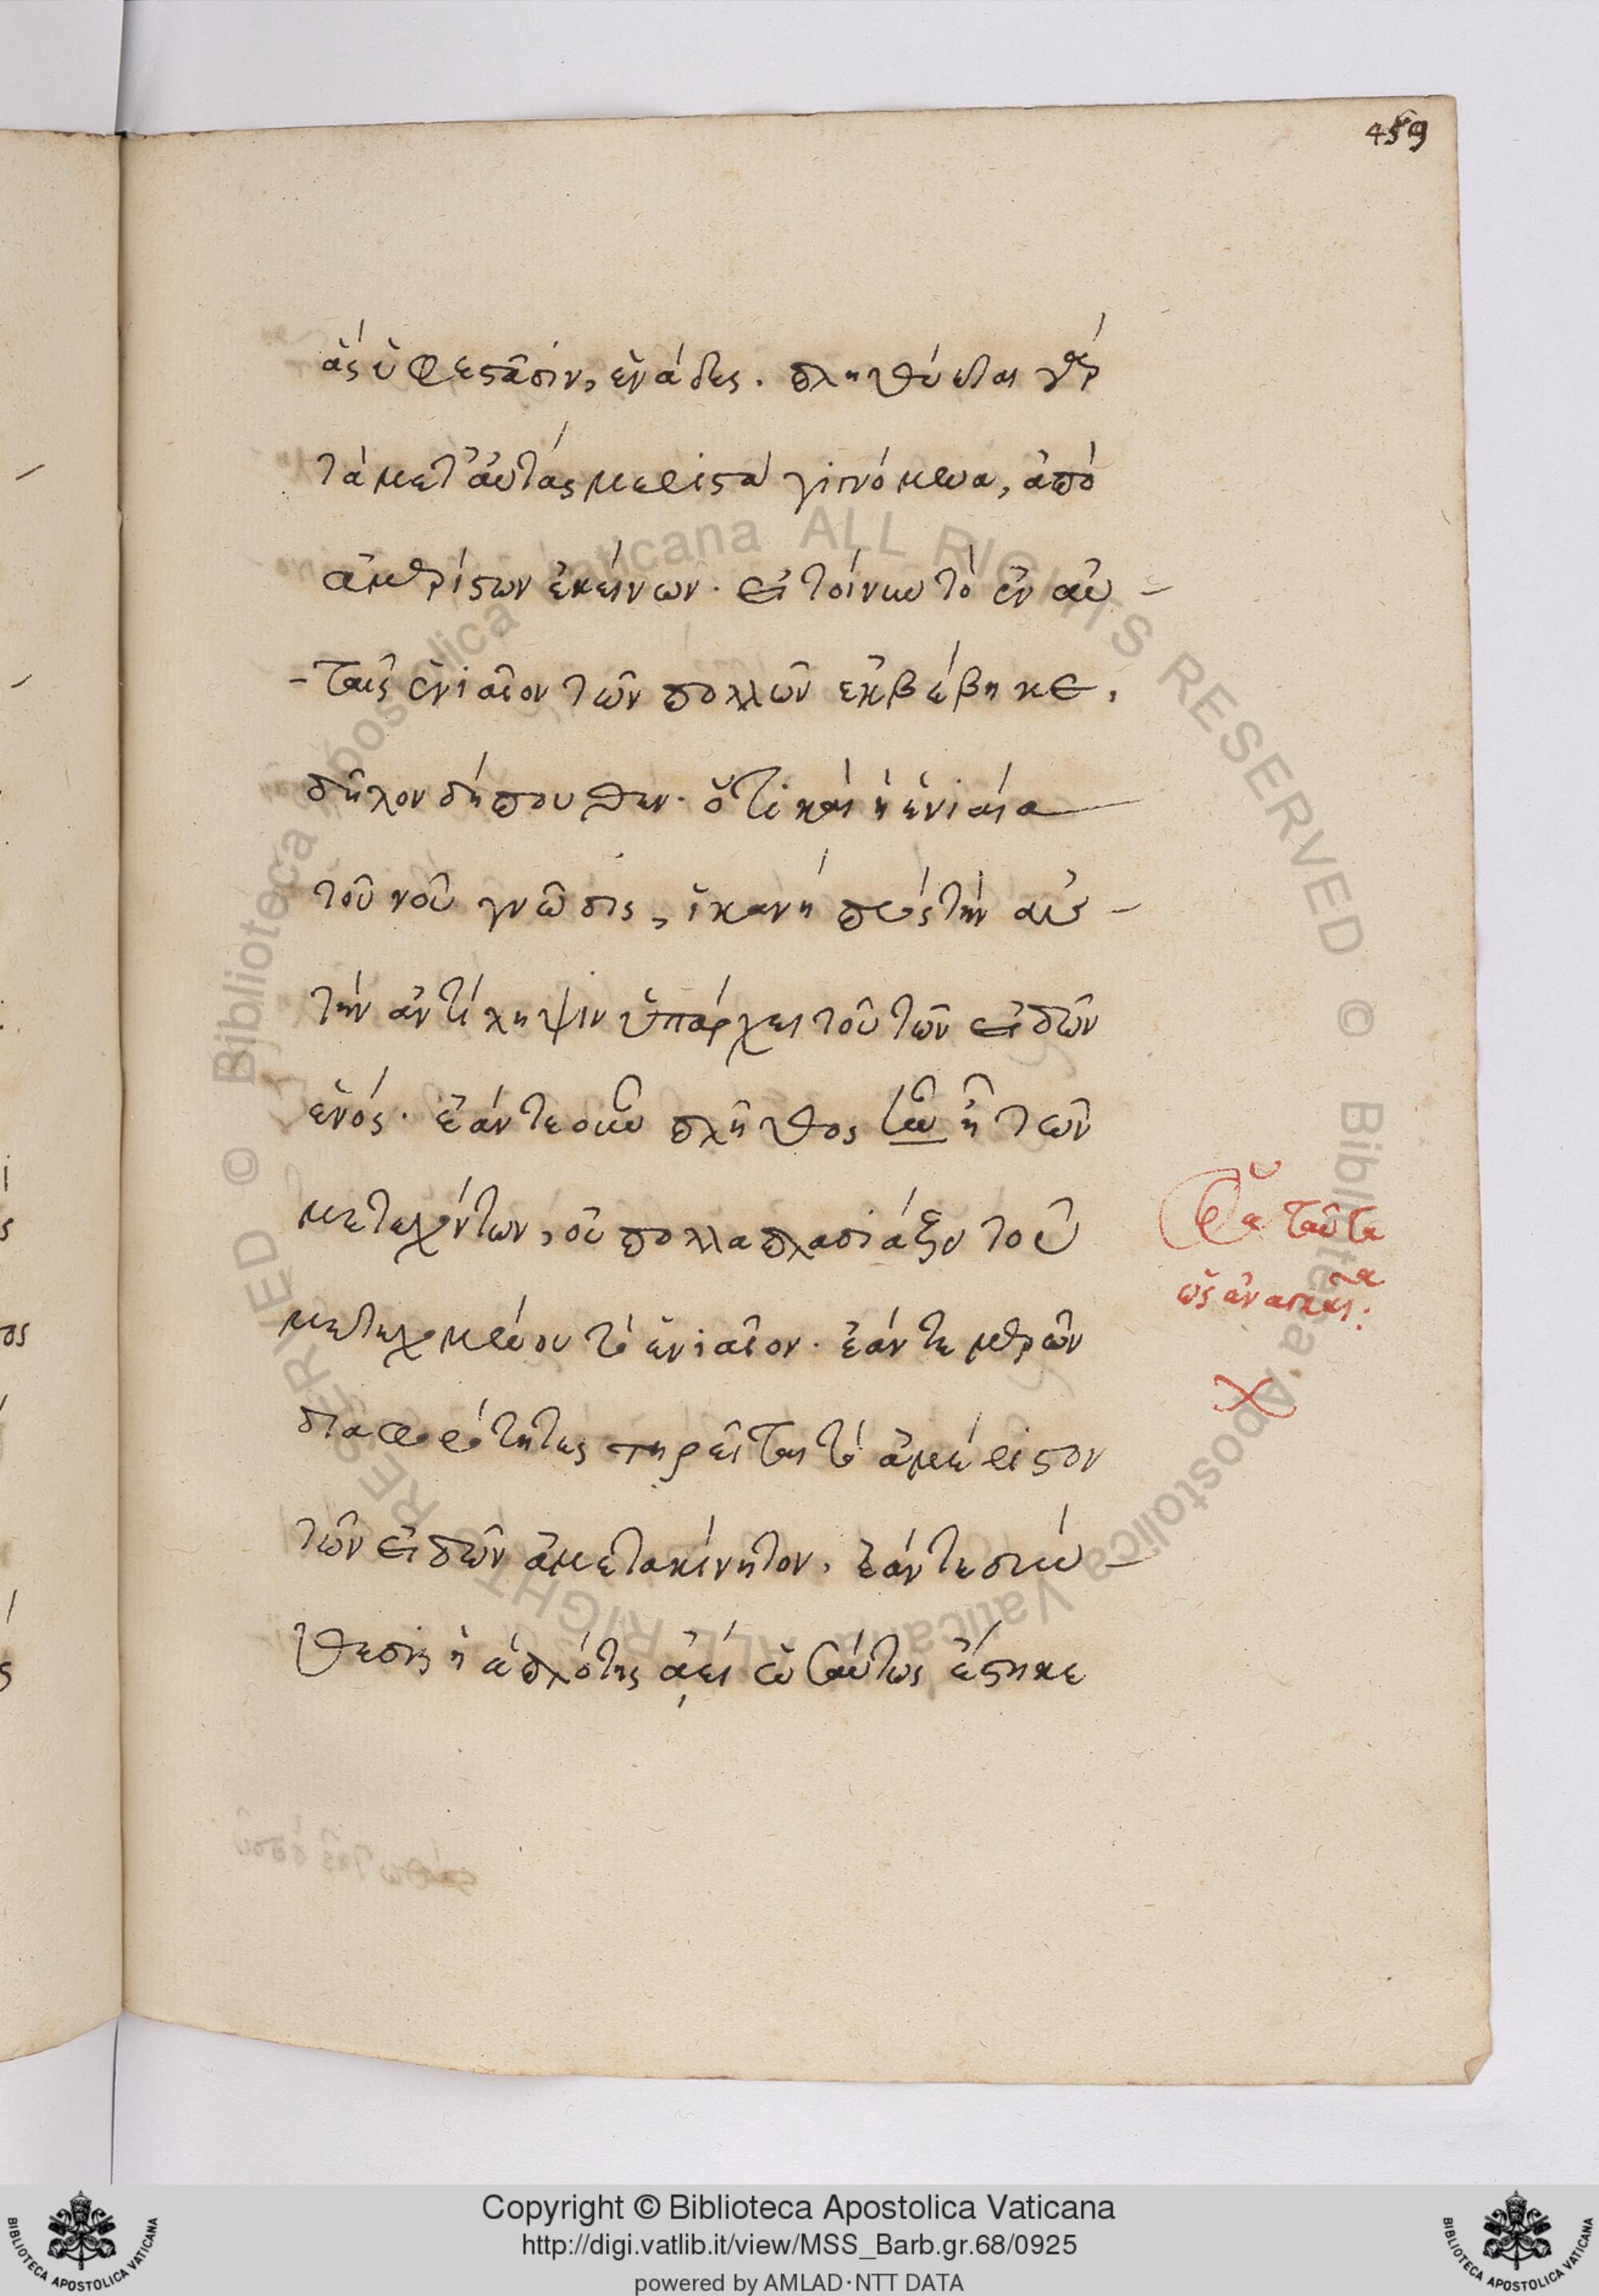 459
ἃς ὑφεστᾶσιν, ἑνάδες. πληθύεται γὰρ
τὰ μετ' αὐτὰς μεριστὰ γινόμενα, ἀπὸ
ἀμερίστων ἐκείνων. εἰ τοίνυν τὸ ἐν αὐ-
-ταῖς ἑνιαῖον τῶν πολλῶν ἐκβέβηκε,
δῆλον δήπουθεν. ὅτι καὶ ἡ ἑνιαία
τοῦ νοῦ γνῶσις, ἱκανὴ πρὸς τὴν αὐ-
τὴν ἀντίληψιν ὑπάρχει τοῦ τῶν εἰδῶν
ἑνός. ἐάν τε οὖν πλῆθος ᾖ τῶν
μετεχόντων, οὐ πολλαπλασιάζει τοῦ
μετεχομένου τὸ ἑνιαῖον. ἐάν τε μερῶν
διαφορότητες τηρεῖται τὸ ἀμέριστον
τῶν εἰδῶν ἀμετακίνητον, ἐάν τε σύν-
θεσις ἡ ἁπλότης ἀεὶ ὡσαύτως ἕστηκε
ταῦτα
Copyright © Biblioteca Apostolica Vaticana
http://digi.vatlib.it/view/MSS_Barb.gr.68/0925
powered by AMLAD·NTT DATA
BIBLIOTECA APOSTOLICA VATICANA
BIBLIOTECA APOSTOLICA VATICANA
© Biblioteca Apostolica Vaticana ALL RIGHTS RESERVED © Biblioteca Apostolica Vaticana ALL RIGHTS RESERVED